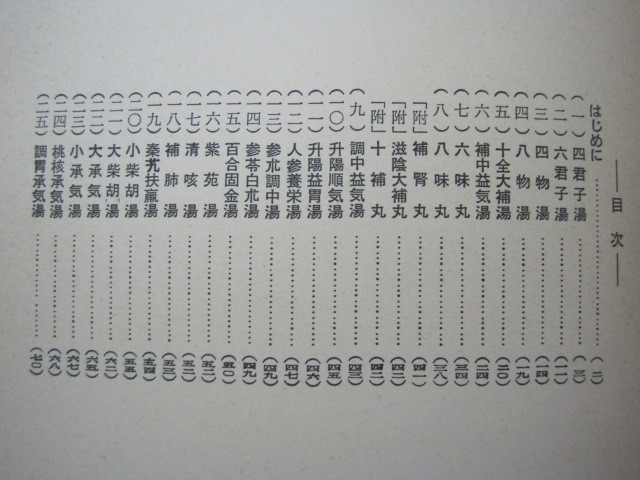 ── 目次 ──
はじめに……………………（二）
（一）四君子湯……………………（三）
（二）六君子湯……………………（一一）
（三）四物湯……………………（一四）
（四）八物湯……………………（一九）
（五）十全大補湯……………………（二〇）
（六）補中益気湯……………………（二四）
（七）六味丸……………………（三四）
（八）八味丸……………………（三八）
「附」補腎丸……………………（四一）
「附」滋陰大補丸……………………（四二）
「附」十補丸……………………（四二）
（九）調中益気湯……………………（四三）
（一〇）升陽順気湯……………………（四五）
（一一）升陽益胃湯……………………（四六）
（一二）人参養栄湯……………………（四七）
（一三）参朮調中湯……………………（四九）
（一四）参苓白朮湯……………………（四九）
（一五）百合固金湯……………………（五〇）
（一六）紫苑湯……………………（五二）
（一七）清咳湯……………………（五二）
（一八）補肺湯……………………（五三）
（一九）秦艽扶羸湯……………………（五四）
（二〇）小柴胡湯……………………（五五）
（二一）大柴胡湯……………………（六二）
（二二）大承気湯……………………（六五）
（二三）小承気湯……………………（六七）
（二四）桃核承気湯……………………（六八）
（二五）調胃承気湯……………………（七〇）